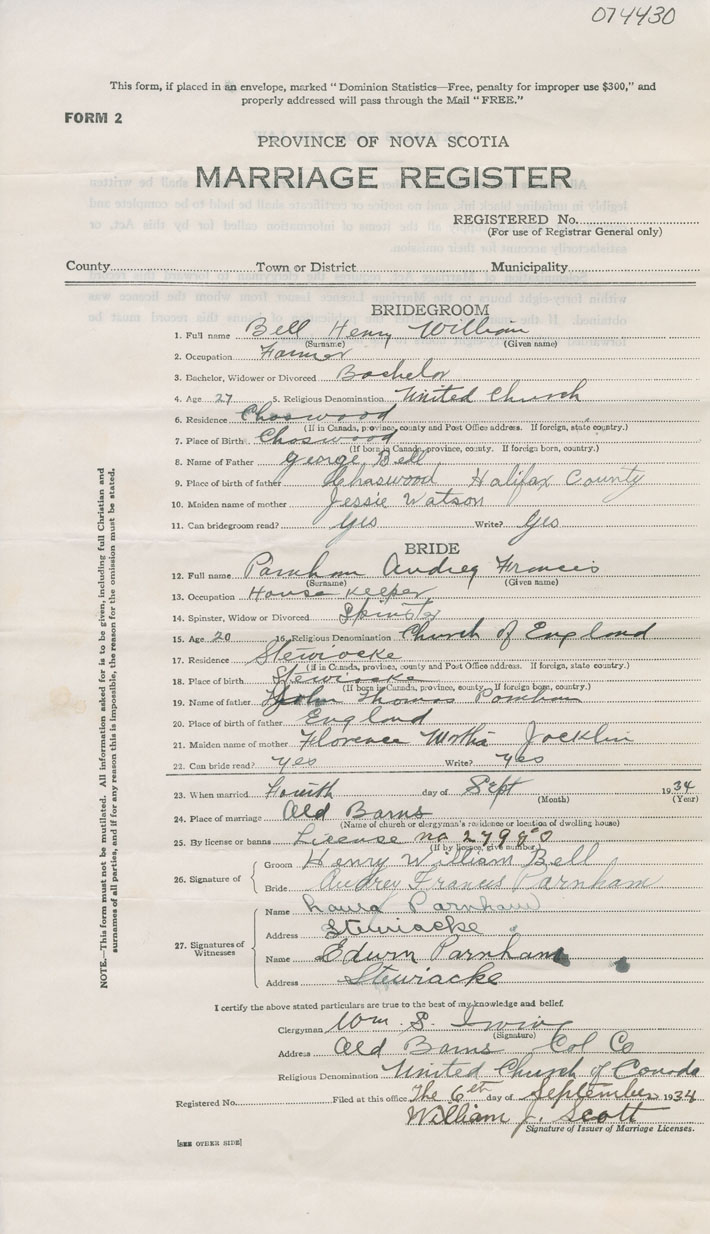 074430
This form, if placed in an envelope, marked "Dominion Statistics—Free, penalty for improper use $300," and
properly addressed will pass through the Mail "FREE."
FORM 2
PROVINCE OF NOVA SCOTIA
MARRIAGE REGISTER
REGISTERED No.
(For use of Registrar General only)
County Town or District Municipality
BRIDEGROOM
1. Full name Bell Henry William
(Surname) (Given name)
2. Occupation Farmer
3. Bachelor, Widower or Divorced Bachelor
4. Age 27 5. Religious Denomination United Church
6. Residence Chaswood
(If in Canada, province, county and Post Office address. If foreign, state country.)
7. Place of Birth Chaswood
(If born in Canada, province, county. If foreign born, country.)
8. Name of Father George Bell
9. Place of birth of father Chaswood Halifax County
10. Maiden name of mother Jessie Watson
11. Can bridegroom read? Yes Write? Yes
BRIDE
12. Full name Parnham Audrey Francis
(Surname) (Given name)
13. Occupation House Keeper
14. Spinster, Widow or Divorced Spinster
15. Age 20 16. Religious Denomination Church of England
17. Residence Stewiacke
(If in Canada, province, county and Post Office address. If foreign, state country.)
18. Place of birth Stewiacke
(If born in Canada, province, county. If foreign born, country.)
19. Name of father John Thomas Parnham
20. Place of birth of father England
21. Maiden name of mother Florence Jacklin
22. Can bride read? Yes Write? Yes
23. When married Fourth day of Sept 1934
(Month) (Year)
24. Place of marriage Old Barns
(Name of church or clergyman's residence or location of dwelling house)
25. By license or banns License no 27990
(If by license, give number)
26. Signature of
Groom Henry William Bell
Bride Audrey Francis Parnham
27. Signatures of Witnesses
Name Laura Parnham
Address Stewiacke
Name Edwin Parnham
Address Stewiacke
I certify the above stated particulars are true to the best of my knowledge and belief.
Clergyman Wm. S. Irwin
(Signature)
Address Old Barns Col Co
Religious Denomination United Church of Canada
Registered No. Filed at this office The 6th day of September 1934
William J. Scott
Signature of Issuer of Marriage Licenses.
[SEE OTHER SIDE]
NOTE.—This form must not be mutilated. All information asked for is to be given, including full Christian and
surnames of all parties, and if for any reason this is impossible, the reason for the omission must be stated.